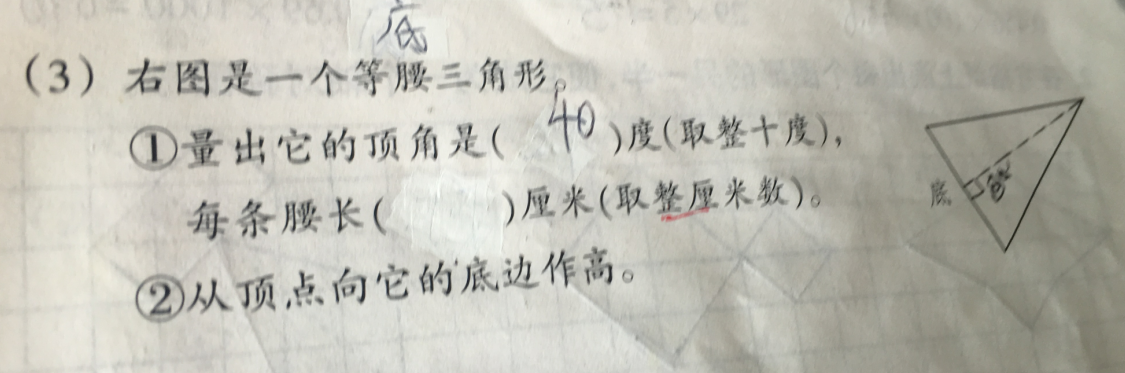 底
(3) 右图是一个等腰三角形。
①量出它的顶角是( 40 )度(取整十度),
每条腰长( )厘米(取整厘米数)。
②从顶点向它的底边作高。
底
高